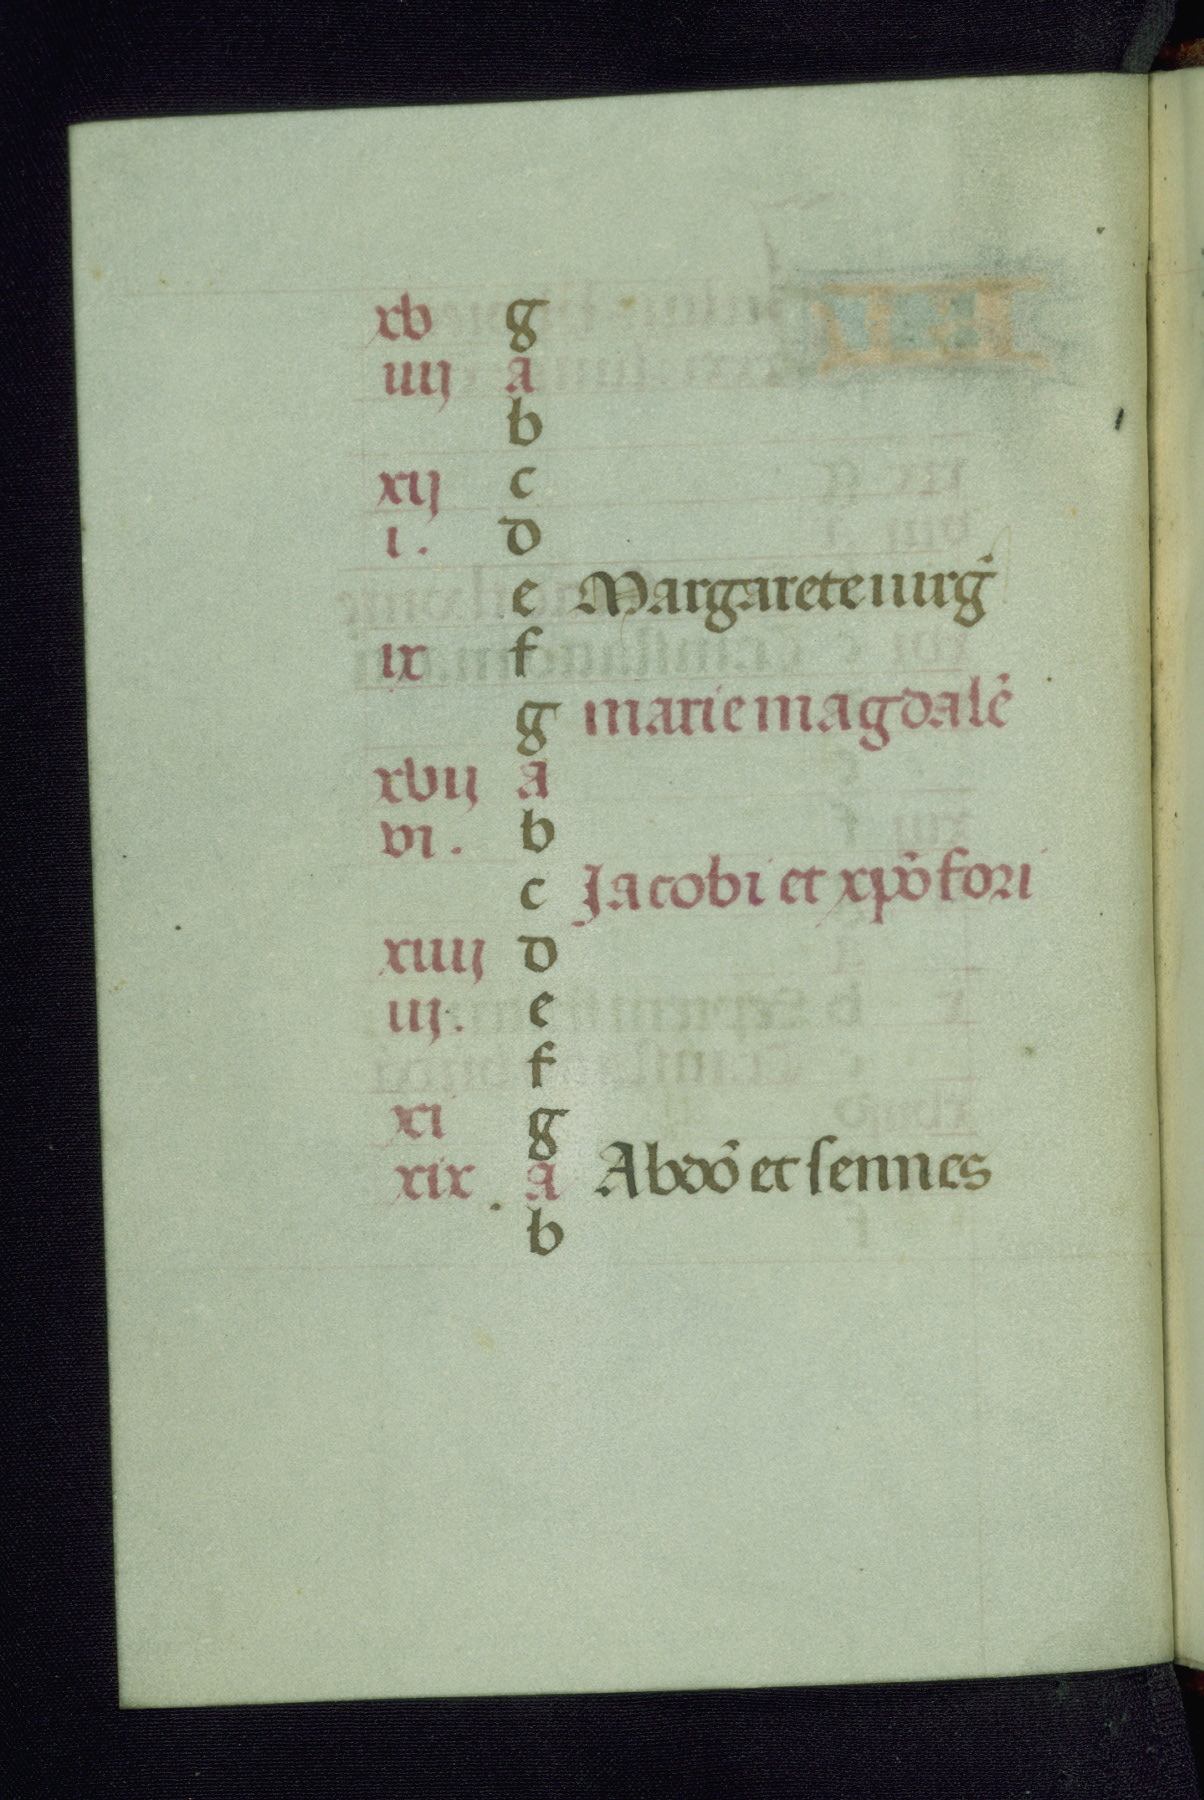 xv g
iiij a
b
xij c
i. d
e Margarete uirg̃
ix f
g marie magdalẽ
xvij a
vi. b
c Jacobi et xpõfori
xiiij d
iij. e
f
xi g
xix. a Abdõ et sennes
b